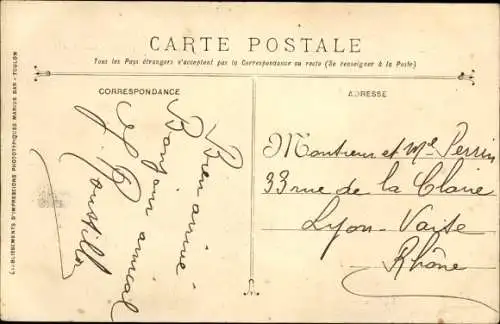 CARTE POSTALE
Tous les Pays étrangers n'acceptent pas la Correspondance au recto (Se renseigner à la Poste)
CORRESPONDANCE
ADRESSE
Bien arrivé
Bonjour amical
Monsieur et Mme Perrin
33 rue de la Claire
Lyon-Vaise
Rhône
ÉTABLISSEMENTS D'IMPRESSIONS PHOTOTYPIQUES MARIUS BAR - TOULON